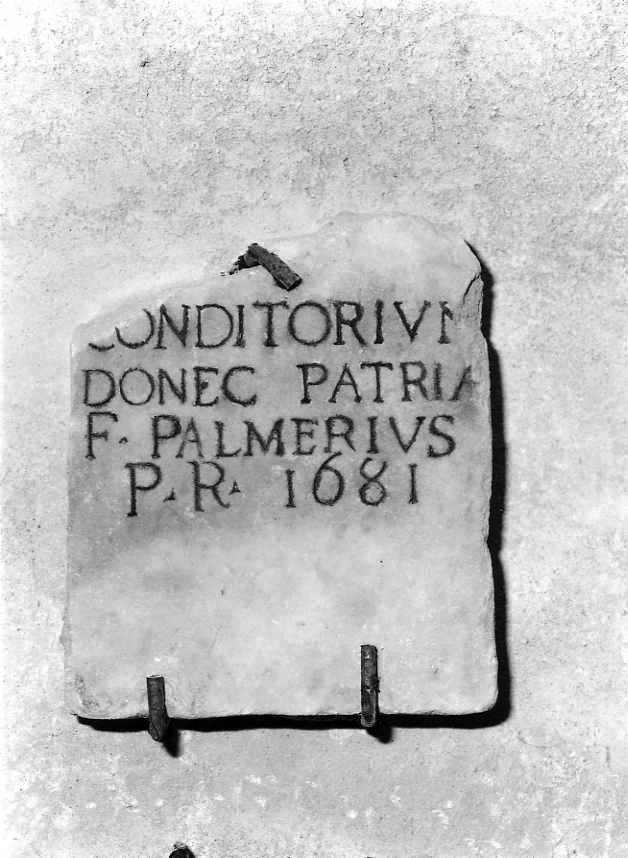 CONDITORIVM
DONEC PATRIA
F. PALMERIVS
P. R. 1681